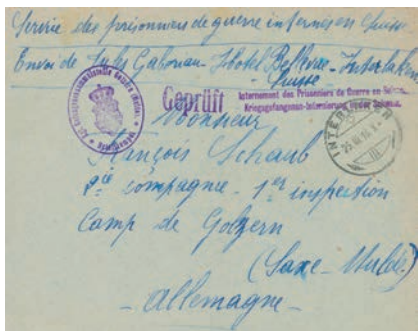 Service des prisonniers de guerre internés en Suisse
Envoi de Jules Gaborian - Hôtel Bellevue - Interlaken
Suisse
Geprüft
Internement des Prisonniers de Guerre en Suisse.
Kriegsgefangenen-Internierung in der Schweiz.
INTERLAKEN
Monsieur
François Schaub
9e compagnie - 1er inspection
Camp de Golzern
(Saxe - Mulde)
- Allemagne -